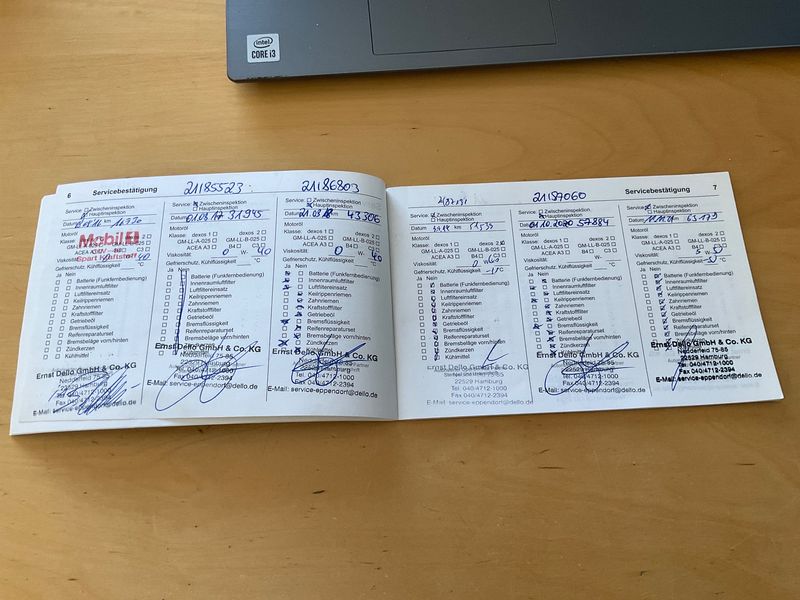 intel
CORE i3
6 Servicebestätigung
21185523
21186803
Service: Zwischeninspektion
Hauptinspektion
Datum km 11370
Motoröl
Klasse: dexos 1 dexos 2
Mobil 1
Spart Kraftstoff
Viskosität: W- 40
Gefrierschutz, Kühlflüssigkeit °C
Ja Nein
Batterie (Funkfernbedienung)
Innenraumluftfilter
Luftfiltereinsatz
Keilrippenriemen
Zahnriemen
Kraftstofffilter
Getriebeöl
Bremsflüssigkeit
Reifenreparaturset
Bremsbeläge vorn/hinten
Zündkerzen
Kühlmittel
Ernst Dello GmbH & Co. KG
Nedderfeld 75-85
22529 Hamburg
Tel. 040/4712-1000
Fax 040/4712-2394
E-Mail: service-eppendorf@dello.de
Service: Zwischeninspektion
Hauptinspektion
Datum 01.03.17 31945
Motoröl
Klasse: dexos 1 dexos 2
GM-LL-A-025 GM-LL-B-025
ACEA A3 B4 C3
Viskosität: 0 W- 40
Gefrierschutz, Kühlflüssigkeit °C
Ja Nein
Batterie (Funkfernbedienung)
Innenraumluftfilter
Luftfiltereinsatz
Keilrippenriemen
Zahnriemen
Kraftstofffilter
Getriebeöl
Bremsflüssigkeit
Reifenreparaturset
Bremsbeläge vorn/hinten
Zündkerzen
Ernst Dello GmbH & Co. KG
Nedderfeld 75-85
22529 Hamburg
Tel. 040/4712-1000
Fax 040/4712-2394
E-Mail: service-eppendorf@dello.de
Service: Zwischeninspektion
Hauptinspektion
Datum 21.03.18 km 43306
Motoröl
Klasse: dexos 1 dexos 2
GM-LL-A-025 GM-LL-B-025
ACEA A3 B4 C3
Viskosität: 0 W- 40
Gefrierschutz, Kühlflüssigkeit °C
Ja Nein
Batterie (Funkfernbedienung)
Innenraumluftfilter
Luftfiltereinsatz
Keilrippenriemen
Zahnriemen
Kraftstofffilter
Getriebeöl
Bremsflüssigkeit
Reifenreparaturset
Bremsbeläge vorn/hinten
Zündkerzen
Ernst Dello GmbH & Co. KG
Tel. 040/4712-1000
Fax 040/4712-2394
E-Mail: service-eppendorf@dello.de
21187060
Servicebestätigung 7
Service: Zwischeninspektion
Hauptinspektion
Datum km
Motoröl
Klasse: dexos 1 dexos 2
GM-LL-A-025 GM-LL-B-025
ACEA A3 B4 C3
Viskosität: 0 W
Gefrierschutz, Kühlflüssigkeit °C
Ja Nein
Batterie (Funkfernbedienung)
Innenraumluftfilter
Luftfiltereinsatz
Keilrippenriemen
Zahnriemen
Kraftstofffilter
Getriebeöl
Bremsflüssigkeit
Reifenreparaturset
Bremsbeläge vorn/hinten
Zündkerzen
Kühlmittel
Ernst Dello GmbH & Co. KG
22529 Hamburg
Tel. 040/4712-1000
Fax 040/4712-2394
E-Mail: service-eppendorf@dello.de
Service: Zwischeninspektion
Hauptinspektion
Datum 01.10.2020 57884
Motoröl
Klasse: dexos 1 dexos 2
GM-LL-A-025 GM-LL-B-025
ACEA A3 B4 C3
Viskosität: W-
Gefrierschutz, Kühlflüssigkeit °C
Ja Nein
Batterie (Funkfernbedienung)
Innenraumluftfilter
Luftfiltereinsatz
Keilrippenriemen
Zahnriemen
Kraftstofffilter
Getriebeöl
Bremsflüssigkeit
Reifenreparaturset
Bremsbeläge vorn/hinten
Zündkerzen
Ernst Dello GmbH & Co. KG
Nedderfeld 75-85
22529 Hamburg
Tel. 040/4712-1000
Fax 040/4712-2394
E-Mail: service-eppendorf@dello.de
Service: Zwischeninspektion
Hauptinspektion
Datum km 63179
Motoröl
Klasse: dexos 1 dexos 2
GM-LL-A-025 GM-LL-B-025
ACEA A3 B4 C3
Viskosität: 5 W-
Gefrierschutz, Kühlflüssigkeit °C
Ja Nein
Batterie (Funkfernbedienung)
Innenraumluftfilter
Luftfiltereinsatz
Keilrippenriemen
Zahnriemen
Kraftstofffilter
Getriebeöl
Bremsflüssigkeit
Reifenreparaturset
Bremsbeläge vorn/hinten
Ernst Dello GmbH & Co. KG
Nedderfeld 75-85
22529 Hamburg
Tel. 040/4712-1000
Fax 040/4712-2394
E-Mail: service-eppendorf@dello.de